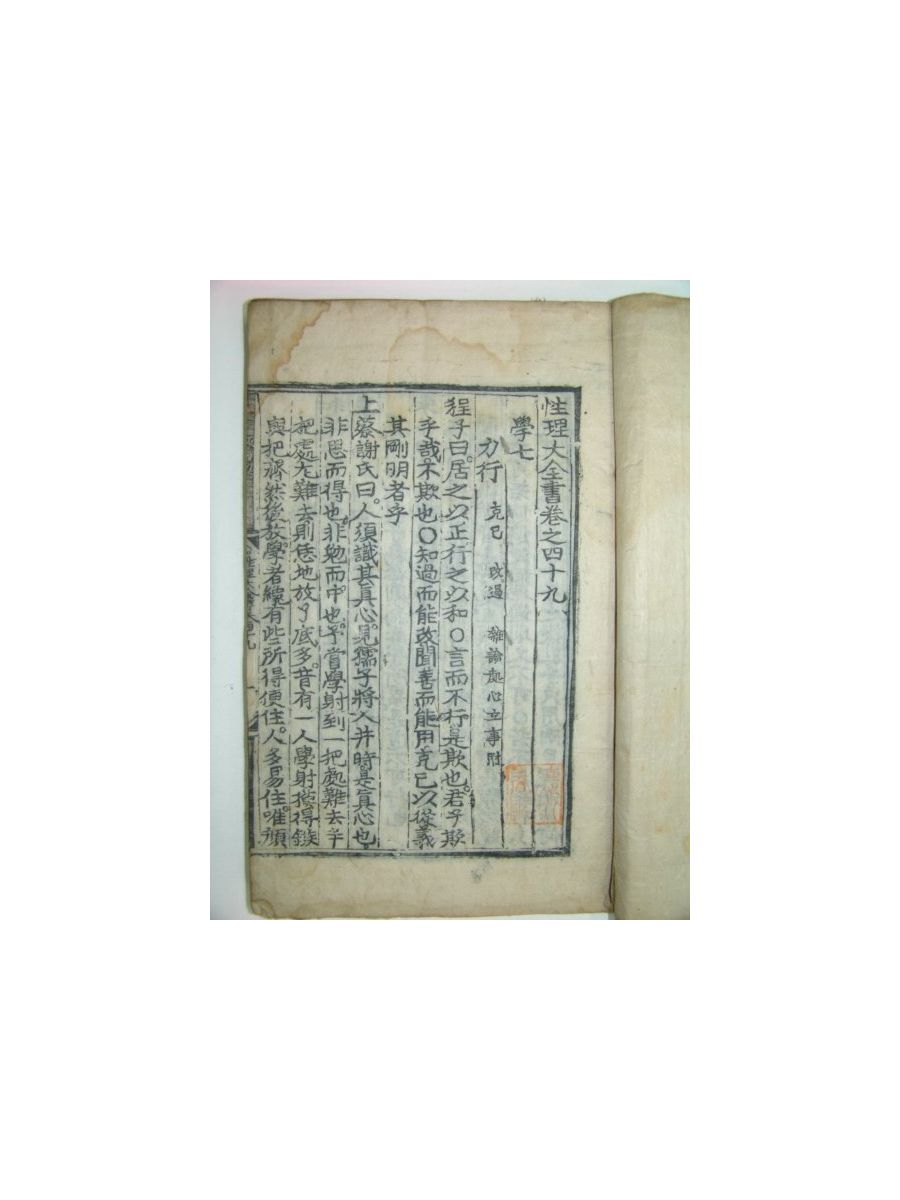 性理大全書卷之四十九
學七
力行 克己 改過 雜論處心立事附
程子曰居之以正行之以和〇言而不行是欺也君子欺
乎哉不欺也〇知過而能改聞善而能用克己以從義
其剛明者乎
上蔡謝氏曰人須識其真心見孺子將入井時是眞心也
非思而得也非勉而中也予嘗學射到一把處難去半
把處尤難去則恁地放了底多昔有一人學射摸得鏃
與把齊然後放學者纔有些所得便住人多易住唯顔